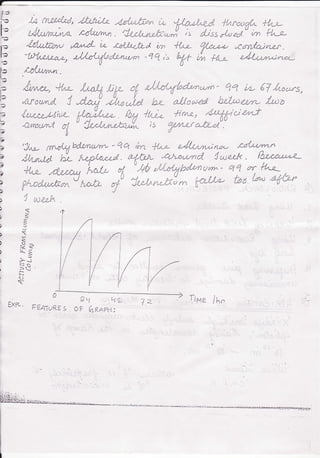 is needed, sterile solution is flashed through the
alumina column. Technetium is dissolved in the
solution and is collected in the glass container.
Whereas, Molybdenum-99 is left in the alumina
column.
Since, the half life of Molybdenum-99 is 67 hours,
around 1 day should be allowed between two
successive flashes. By this time, sufficient
amount of Technetium is generated.
The molybdenum-99 in the alumina column
should be replaced after around 1 week. Because
the decay rate of Molybdenum-99 or the
production rate of Technetium falls too low after
1 week.
ACTIVITY FROM ALUMINA
COLUMN
0 24 48 72 TIME /hr
EXP. FEATURES OF GRAPH: